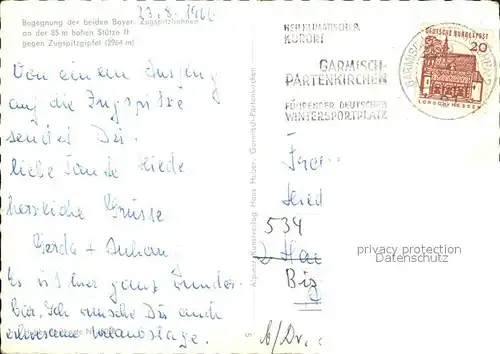 23.8.1966
Begegnung der beiden Bayer. Zugspitzbahnen
an der 85 m hohen Stütze II
gegen Zugspitzgipfel (2964 m)
Von einem Ausflug
auf die Zugspitze
sendet Dir
liebe Tante Hiede
herzliche Grüsse
Gerda +
Es ist hier ganz wunder-
bar. Ich wünsche Dir auch
Alpiner Kunstverlag Hans Huber, Garmisch-Partenkirchen
HEILKLIMATISCHER
KURORT
GARMISCH-
PARTENKIRCHEN
FÜHRENDER DEUTSCHER
WINTERSPORTPLATZ
DEUTSCHE BUNDESPOST
20
LORSCH/HESSEN
534
Bis
b/Dr.
privacy protection
Datenschutz